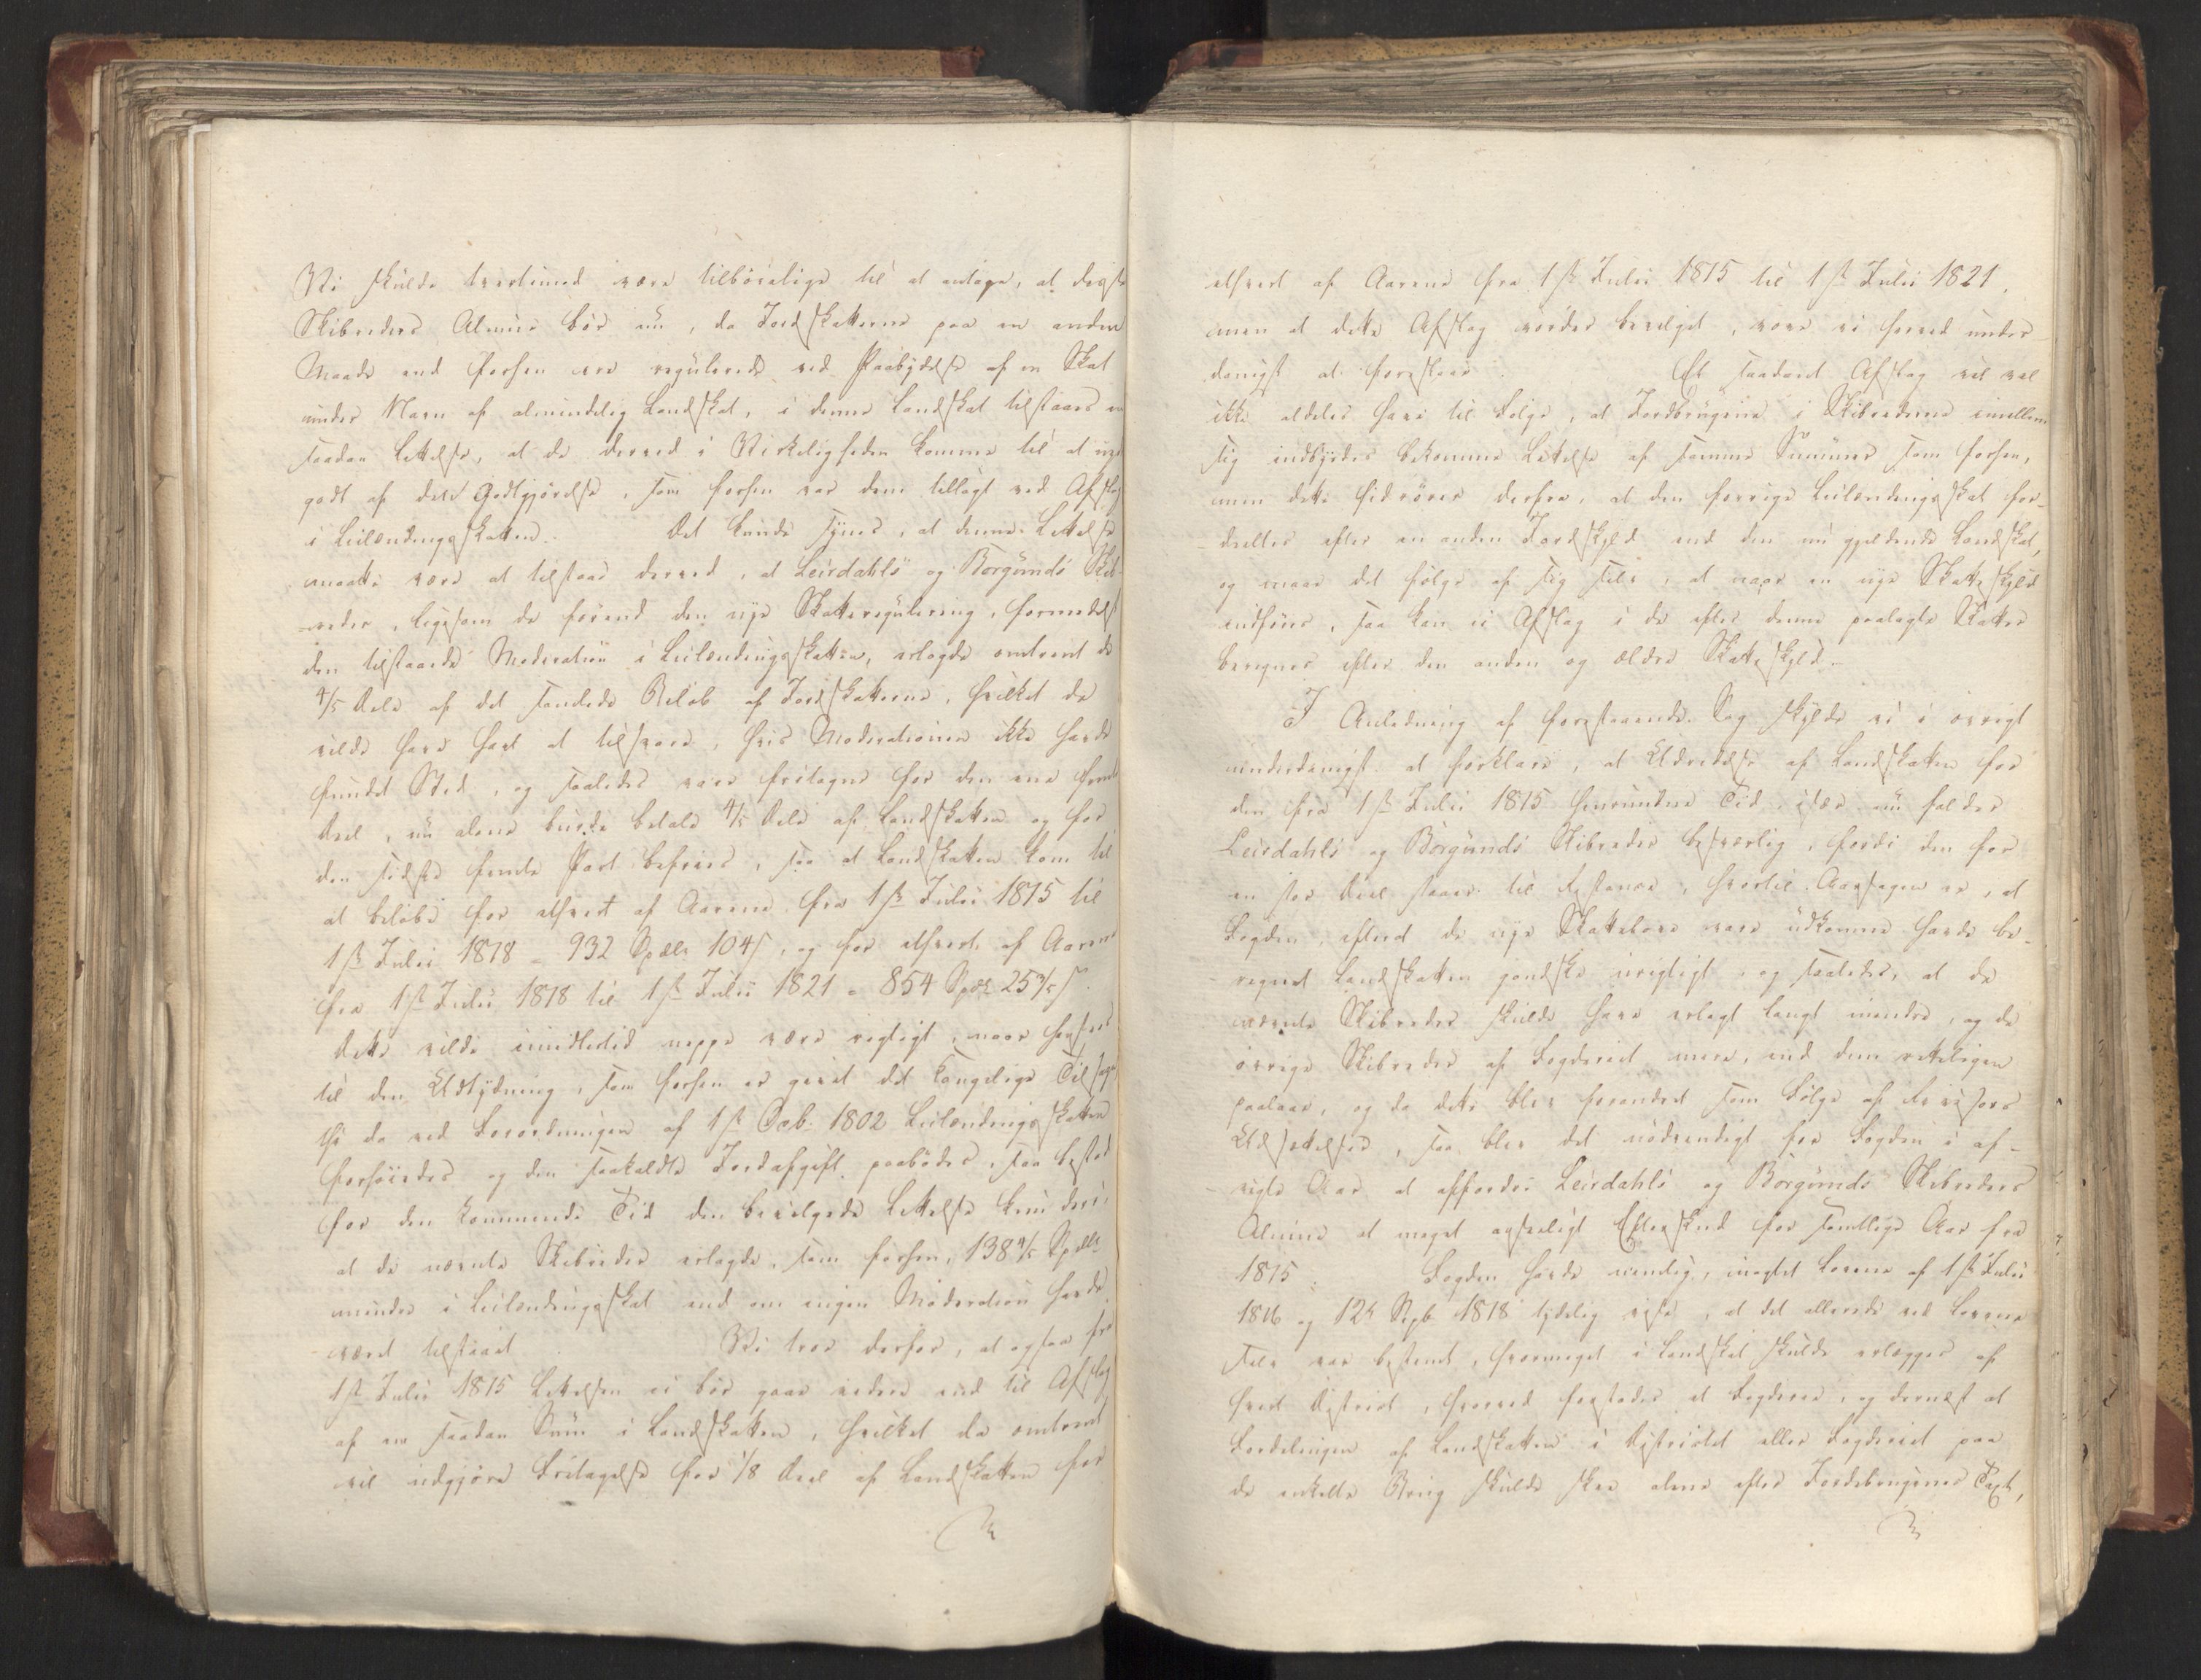 Vi skulde tvertimod være tilböielige til at antage, at disse
Skibreders Almue bör nu, da Jordskatterne paa en anden
Maade end forhen ere regulerede ved Paabydelse af en Skat
under Navn af almindelig Landskat, i denne Landskat tilstaaes en
saadan Lettelse, at de derved i Virkeligheden komme til at nyde
godt af den Godtgjörelse, som forhen var dem tillagt ved Afslag
i Leilændingsskatten. Det kunde synes, at denne Lettelse
maatte være at tilstaae derved, at Leirdahls og Borgunds Skib-
reder, ligesom de forend den nye Skatteregulering, formedelst
den tilstaaede Moderation i Leilændingsskatten, erlagde omtrent de
4/5 Dele af det samlede Belöb af Jordskatterne, hvilket de
vilde have havt at tilsvare, hvis Moderationen ikke havde
fundet Sted, og saaledes vare fritagne for den ene femte
Deel, nu alene burde betale 4/5 Dele af Landskatten og for
den sidste femte Part befries, saa at Landskatten kom til
at belöbe for ethvert af Aarene fra 1ste Julii 1815 til
1ste Julii 1818 = 932 Spdlr 104 s, og for ethvert af Aarene
fra 1ste Julii 1818 til 1ste Julii 1821 = 854 Spdlr 25 3/5 s.
Dette vilde imidlertid neppe være rigtigt, naar hensees
til den Udtydning, som forhen er givet det Kongelige Tilsagn
thi da ved Forordningen af 1ste Octb: 1802 Leilændingsskatten
forhöiedes og den saakaldte Jordafgift paabödes, saa bestod
for den kommende Tid den bevilgede Lettelse kun deri,
at de nævnte Skibreder erlagde, som forhen, 138 4/5 Spdlr
mindre i Leilændingsskat end om ingen Moderation havde
været tilstaaet. Vi troe derfor, at ogsaa fra
1ste Julii 1815 Lettelsen ei bör gaae videre end til Afslag
af en saadan Sum i Landskatten, hvilket da omtrent
vil udgjöre Fritagelse for 1/8 Deel af Landskatten for
ethvert af Aarene fra 1ste Julii 1815 til 1ste Julii 1821.
men at dette Afslag vorder bevilget, vove vi herved under-
danigst at foreslaae. Et saadant Afslag vil vel
ikke aldeles have til Fölge, at Jordbrugerne i Skibrederne imellem
sig indbyrdes bekomme Lettelse af samme Summer som forhen,
men dette hidrörer derfra, at den forrige Leilændingsskat for-
deeltes efter en anden Jordskyld end den nu gjeldende Landskat,
og maae det fölge af sig selv, at naar en nye Skatteskyld
indföres, saa kan ei Afslag i de efter denne paalagte Skatter
beregnes efter den anden og ældre Skatteskyld.
I Anledning af forestaaende Sag skylde vi i övrigt
underdanigst at forklare, at Udredelse af Landskatten for
den fra 1ste Julii 1815 henrundne Tid, især nu falder
Leirdahls og Borgunds Skibreder besværlig, fordi den for
en stor Deel staaer til Restance, hvortil Aarsagen er, at
Fogden, efterat de nye Skattelove vare udkomne havde be-
regnet Landskatten gandske urigtigt, og saaledes, at de
nævnte Skibreder skulde have erlagt langt mindre, og de
övrige Skibreder af Fogderiet mere, end dem retteligen
paalaae, og da dette blev forandret som Fölge af Revisors
Udsættelser, saa blev det nödvendigt for Fogden i af-
vigte Aar at affordre Leirdahls og Borgunds Skibreders
Almue et meget anseeligt Efterskud for samtlige Aar fra
1815. Fogden havde nemlig, uagtet Lovene af 1ste Julii
1816 og 12te Septb 1818 tydelig vise, at det allerede ved Lovene
selv var bestemt, hvormeget i Landskat skulde erlægges af
hvert District, hvorved forstodes et Fogderie, og dernæst at
Fordelingen af Landskatten i Districtet eller Fogderiet paa
de enkelte Brug skulde skee alene efter Jordebrugenes Taxt,